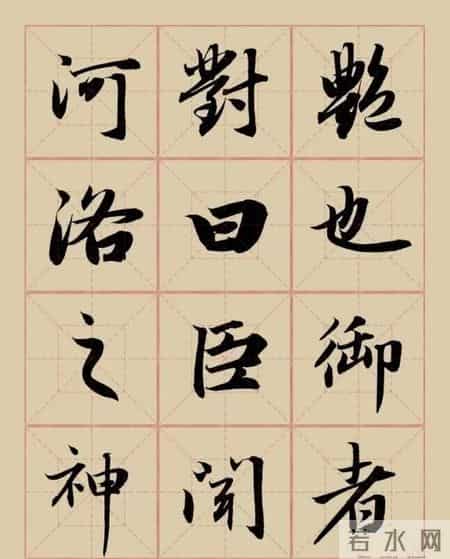 艷也御者
對曰臣聞
河洛之神
若水网